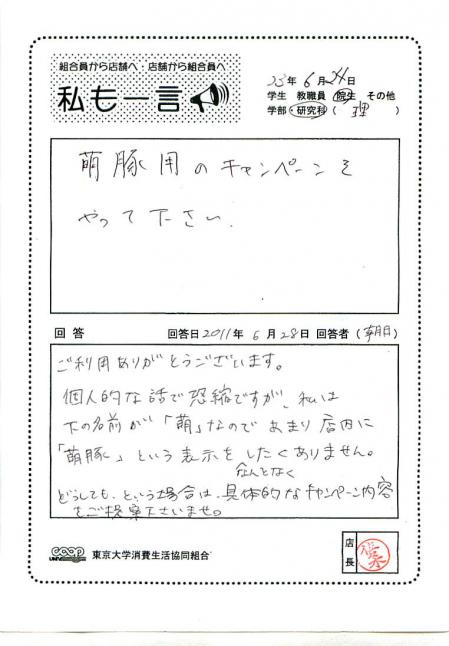 組合員から店舗へ・店舗から組合員へ
私も一言
23年 6月 24日
学生 教職員 院生 その他
学部・研究科 ( 理 )
萌豚用のキャンペーンを
やって下さい.
回答 回答日2011年 6月28日 回答者 (朝日)
ご利用ありがとうございます。
個人的な話で恐縮ですが、私は
下の名前が「萌」なのであまり店内に
「萌豚」という表示をしたくありません。
なんとなく
どうしても、という場合は、具体的なキャンペーン内容
をご提案下さいませ。
coop 東京大学消費生活協同組合
店長